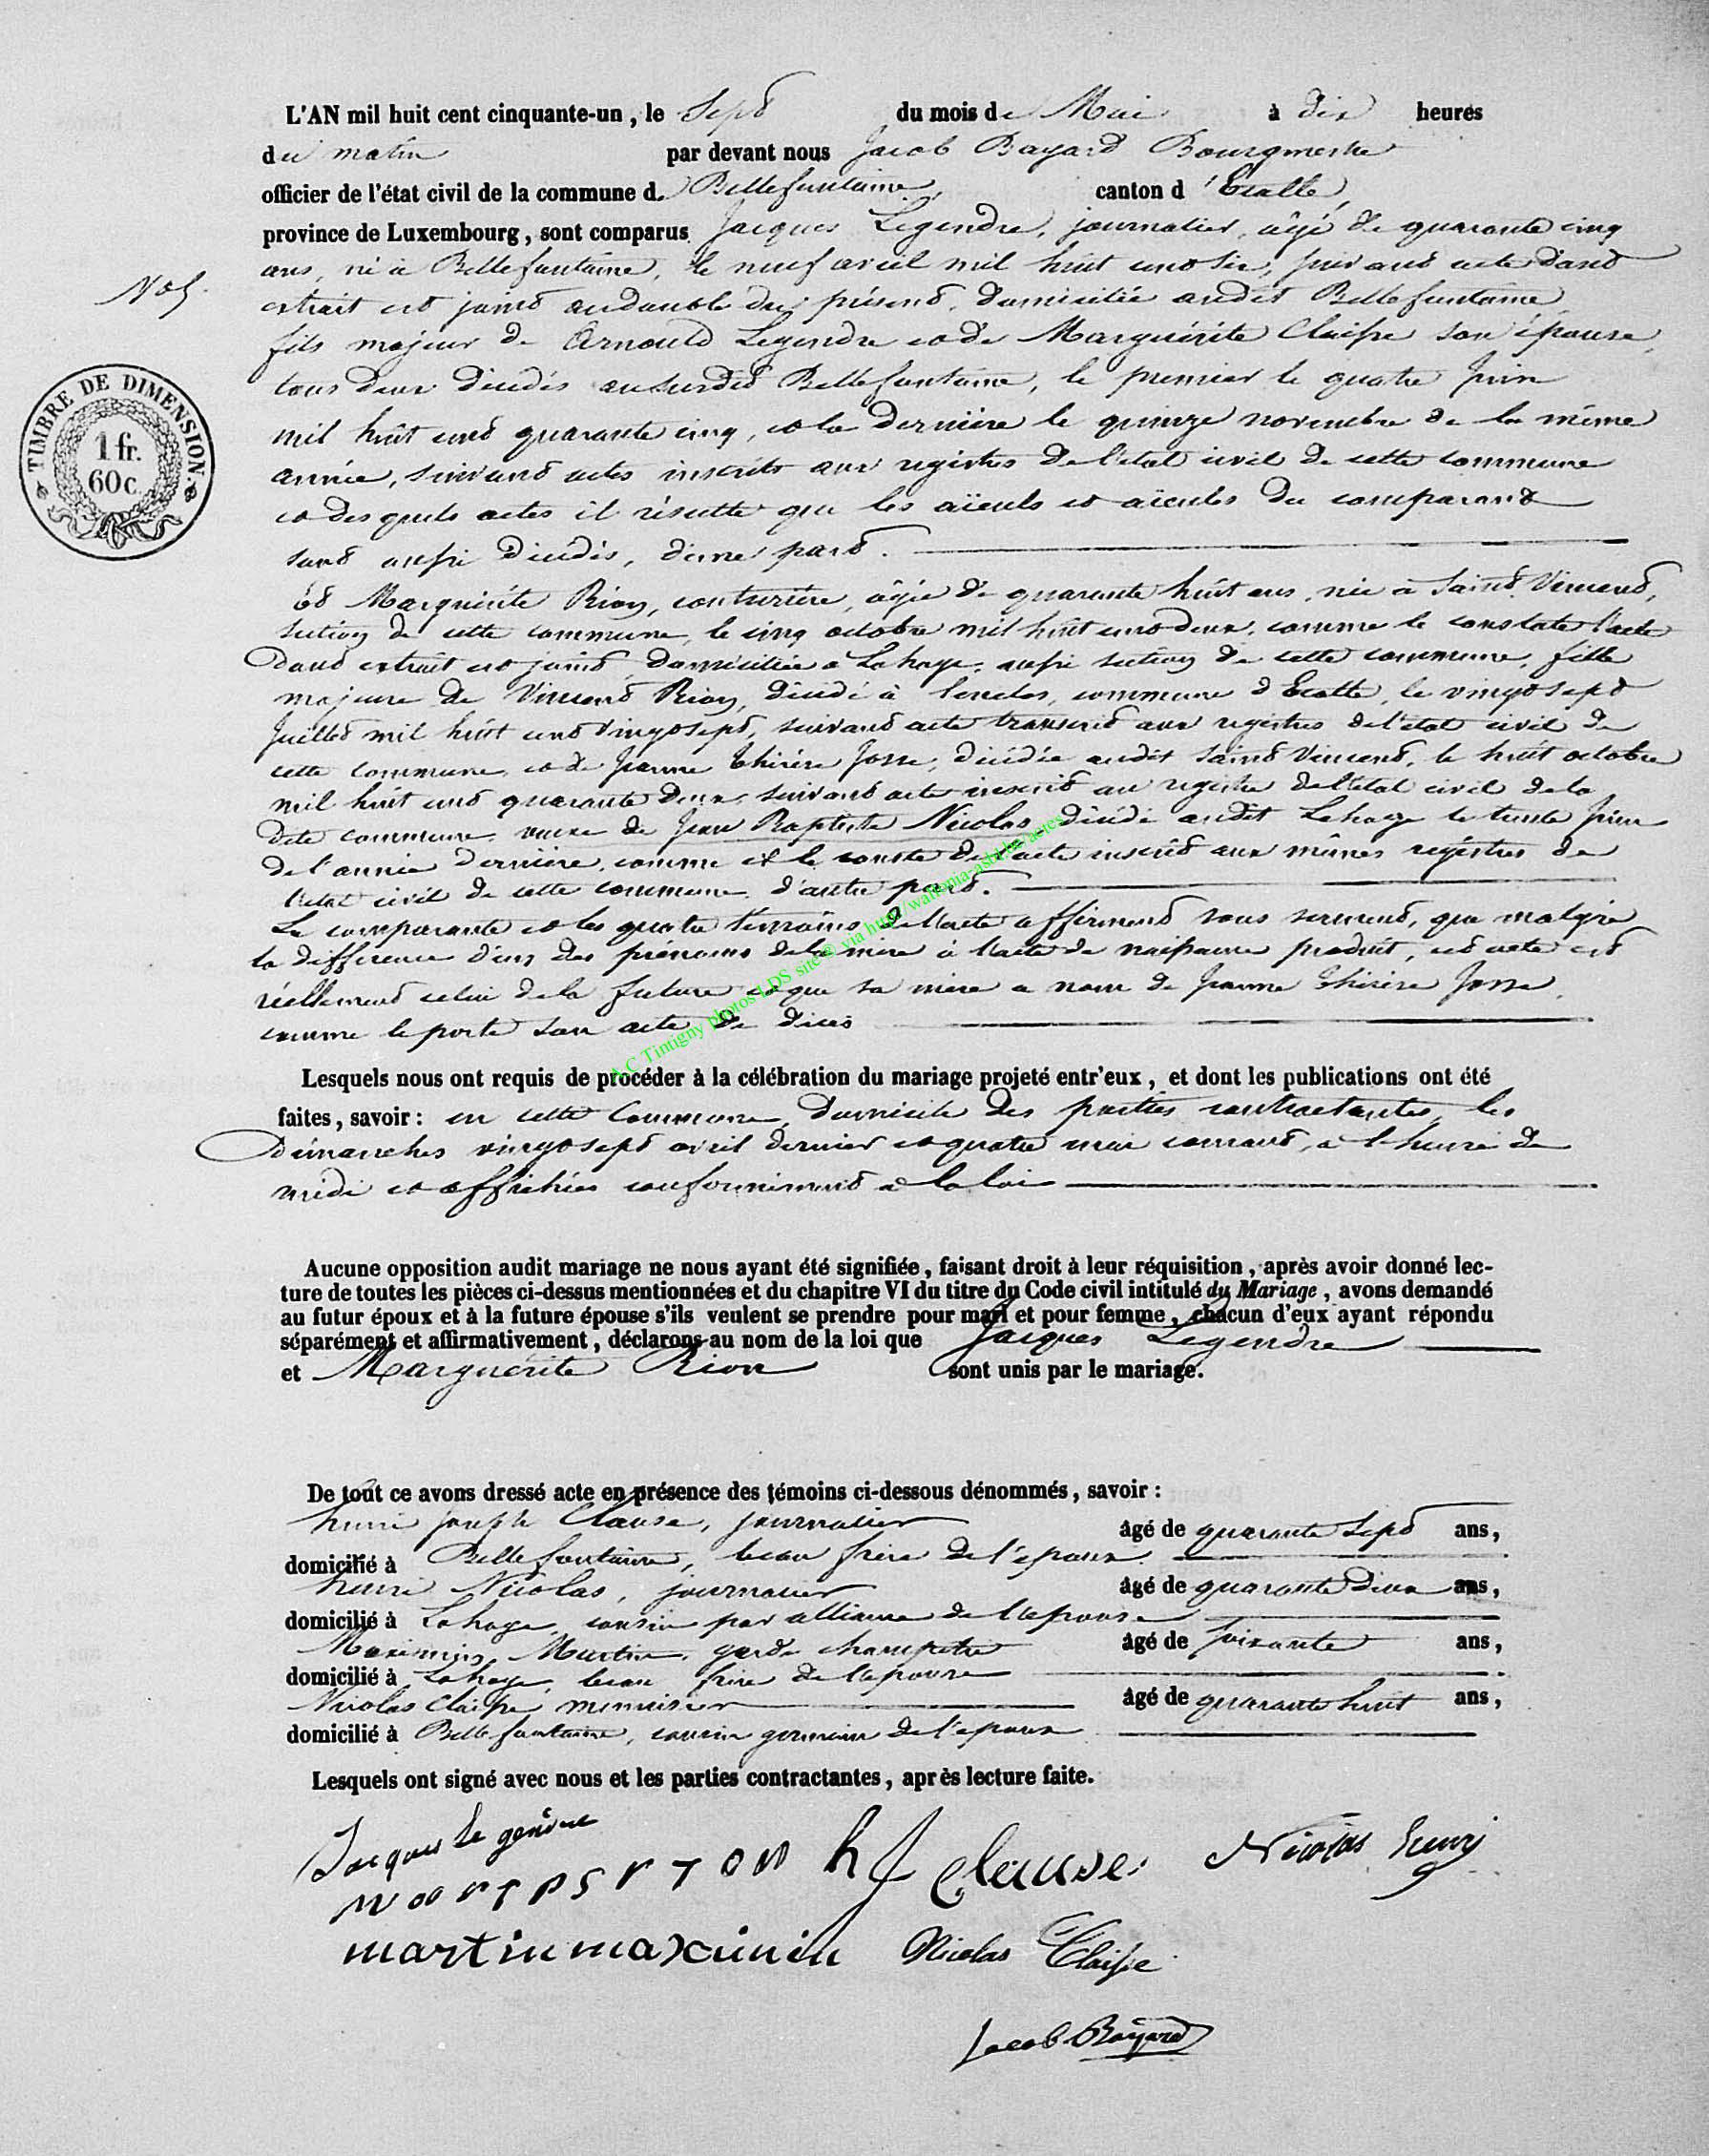 L'AN mil huit cent cinquante-un, le Sept du mois de Mai à dix heures
du matin par devant nous Jacob Bayard Bourgmestre
officier de l'état civil de la commune d. Bellefontaine, canton d'Etalle,
province de Luxembourg, sont comparus Jacques Legendre, journalier, âgé de quarante cinq
ans, né à Bellefontaine, le neuf avril mil huit cent six, suivant acte dont
N° 5.
extrait est joint au double du présent, domicilié audit Bellefontaine,
fils majeur de Arnould Legendre et de Marguérite Claisse son épouse,
tous deux décédés au susdit Bellefontaine, le premier le quatre Juin
mil huit cent quarante cinq, et la dernière le quinze novembre de la même
année, suivant actes inscrits aux registres de l'état civil de cette commune
et desquels actes il résulte que les aïeuls et aïeules du comparant
sont aussi décédés, d'une part.
TIMBRE DE DIMENSION.
1 fr.
60 c
Et Marguérite Rion, couturière, âgée de quarante huit ans, née à Saint Vincent,
section de cette commune, le cinq octobre mil huit cent deux, comme le constate l'acte
dont extrait est joint, domiciliée à Lahage, aussi section de cette commune, fille
majeure de Vincent Rion, décédé à commune d'Etalle, le vingt sept
Juillet mil huit cent vingt sept, suivant acte transcrit aux registres de l'état civil de
cette commune, et de Jeanne Thérèse Josse, décédée audit Saint Vincent, le huit octobre
mil huit cent quarante deux, suivant acte inscrit au registre de l'état civil de la
dite commune, veuve de Jean Baptiste Nicolas, décédé audit Lahage le trente Juin
de l'année dernière, comme il le conste de l'acte inscrit aux mêmes régistres de
l'état civil de cette commune, d'autre part.
La comparante et les quatre témoins de l'acte affirment sous serment, que malgré
la différence d'un des prénoms de la mère à l'acte de naissance produit, cet acte est
réellement celui de la future et que sa mère a nom de Jeanne Thérèse Josse,
comme le porte son acte de décès
A.C Tintigny photos LDS site @ via http://wallonia-asbl.be/actes
Lesquels nous ont requis de procéder à la célébration du mariage projeté entr'eux, et dont les publications ont été
faites, savoir: en cette Commune, domicile des parties contractantes, les
Dimanches vingt sept avril dernier et quatre mai courant, à l'heure de
midi et affichées conformément à la loi
Aucune opposition audit mariage ne nous ayant été signifiée, faisant droit à leur réquisition, après avoir donné lec-
ture de toutes les pièces ci-dessus mentionnées et du chapitre VI du titre du Code civil intitulé du Mariage, avons demandé
au futur époux et à la future épouse s'ils veulent se prendre pour mari et pour femme, chacun d'eux ayant répondu
séparément et affirmativement, déclarons au nom de la loi que Jacques Legendre
et Marguérite Rion sont unis par le mariage.
De tout ce avons dressé acte en présence des témoins ci-dessous dénommés, savoir:
henri Joseph Clause, journalier âgé de quarante Sept ans,
domicilié à Bellefontaine, beau frère de l'époux.
henri Nicolas, journalier âgé de quarante deux ans,
domicilié à Lahage, cousin par alliance de l'épouse
Maximin Martin, garde champêtre âgé de soixante ans,
domicilié à Lahage, beau frère de l'épouse
Nicolas Claisse, menuisier âgé de quarante huit ans,
domicilié à Bellefontaine, cousin germain de l'époux
Lesquels ont signé avec nous et les parties contractantes, après lecture faite.
Jacques Le gendre
h J clause Nicolas henri
martin maximin Nicolas Claisse
Jacob Bayard